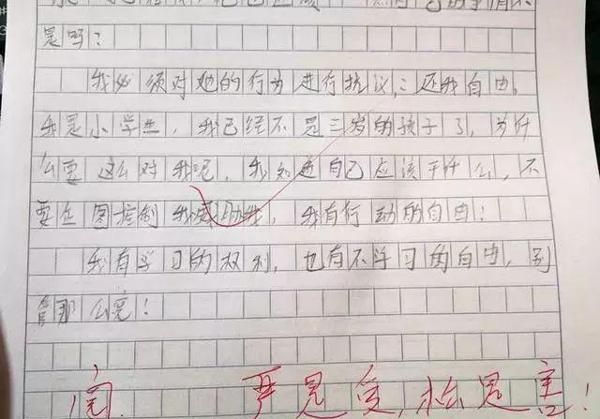 的事情不
是吗？
我必须对她的行为进行抗议，还我自由。
我是小学生，我已经不是三岁的孩子了，为什
么要这么对我呢，我知道自己应该干什么，不
要企图控制我威胁我，我有行动的自由！
我有学习的权利，也有不学习的自由，别
管那么宽！
阅. 严是爱，松是害！